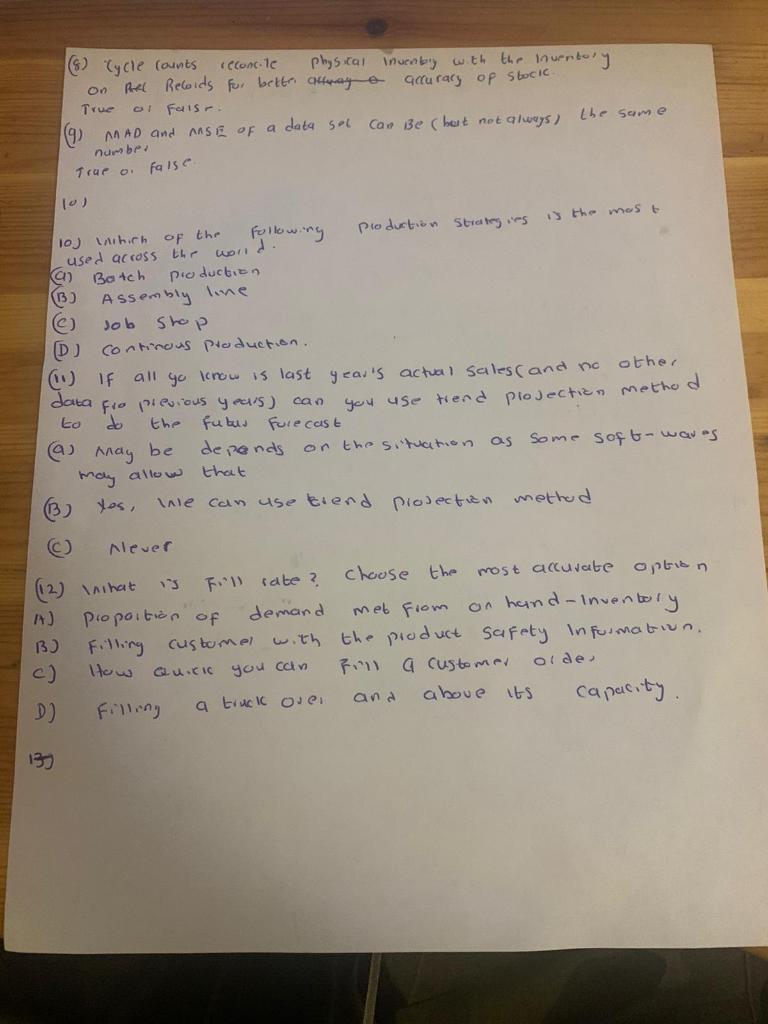 (8) Cycle counts reconcile physical inventoy with the inventory
on Records for better accuracy of stock.
True or False.
(9) MAD and MSE of a data set can Be (but not always) the same
number
True or false.
10)
10) which of the following production strategies is the most
used across the world.
(a) Batch production
(B) Assembly line
(C) Job shop
(D) continous production.
(11) If all yo know is last year's actual sales (and no other
data fro previous years) can you use trend projection method
to do the futur forecast
(a) may be depends on the situation as some soft-waves
may allow that
(B) Yes, We can use trend projection method
(C) Never
(12) What is Fill rate? Choose the most accurate option
A) proportion of demand met from on hand-Inventory
B) Filling customer with the product safety Information.
C) How quick you can Fill a customer order
D) Filling a truck over and above its capacity.
13)